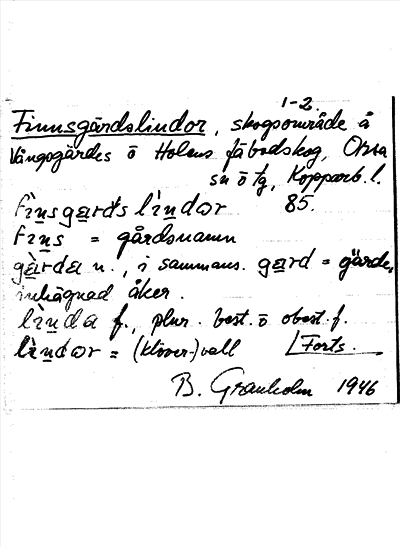 1-2.
Finnsgärdslindor, skogsområde å
Vångsgärdes o Holens fäbodskog, Orsa
sn o tg, Kopparb. l.
fìnsgarḍs lìndor 85.
fìns = gårdsnamn
gàrda n., i sammans. gard = gärde,
inhägnad åker.
lìnda f., plur. best. o obest. f.
lìndor = (klöver-)vall Forts.
B. Granholm 1946